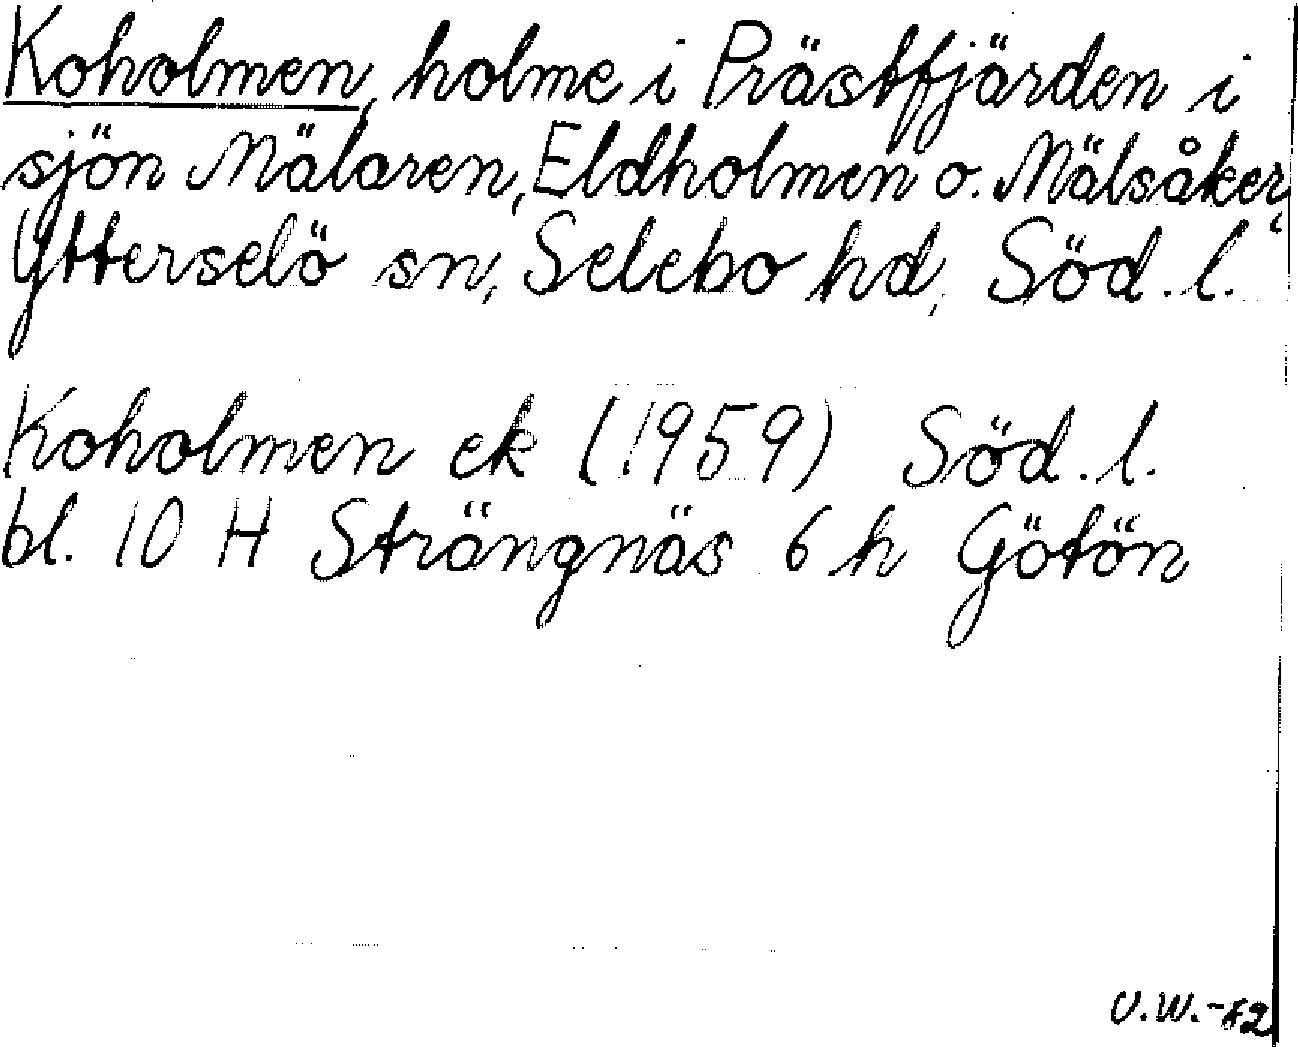 Koholmen, holme i Prästfjärden i
sjön Mälaren, Eldholmen o. Mälsåker,
Ytterselö sn, Selebo hd, Söd. l.
Koholmen ek (1959) Söd. l.
bl. 10 H Strängnäs 6 h Götön
U.W.-82